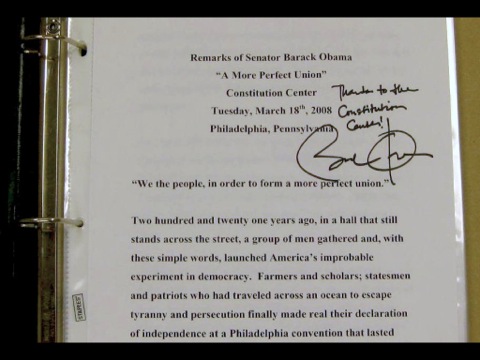 Remarks of Senator Barack Obama
"A More Perfect Union"
Constitution Center
Tuesday, March 18th, 2008
Philadelphia, Pennsylvania
Thanks to the
Constitution
Center!
"We the people, in order to form a more perfect union."
Two hundred and twenty one years ago, in a hall that still
stands across the street, a group of men gathered and, with
these simple words, launched America's improbable
experiment in democracy.  Farmers and scholars; statesmen
and patriots who had traveled across an ocean to escape
tyranny and persecution finally made real their declaration
of independence at a Philadelphia convention that lasted
STAPLES